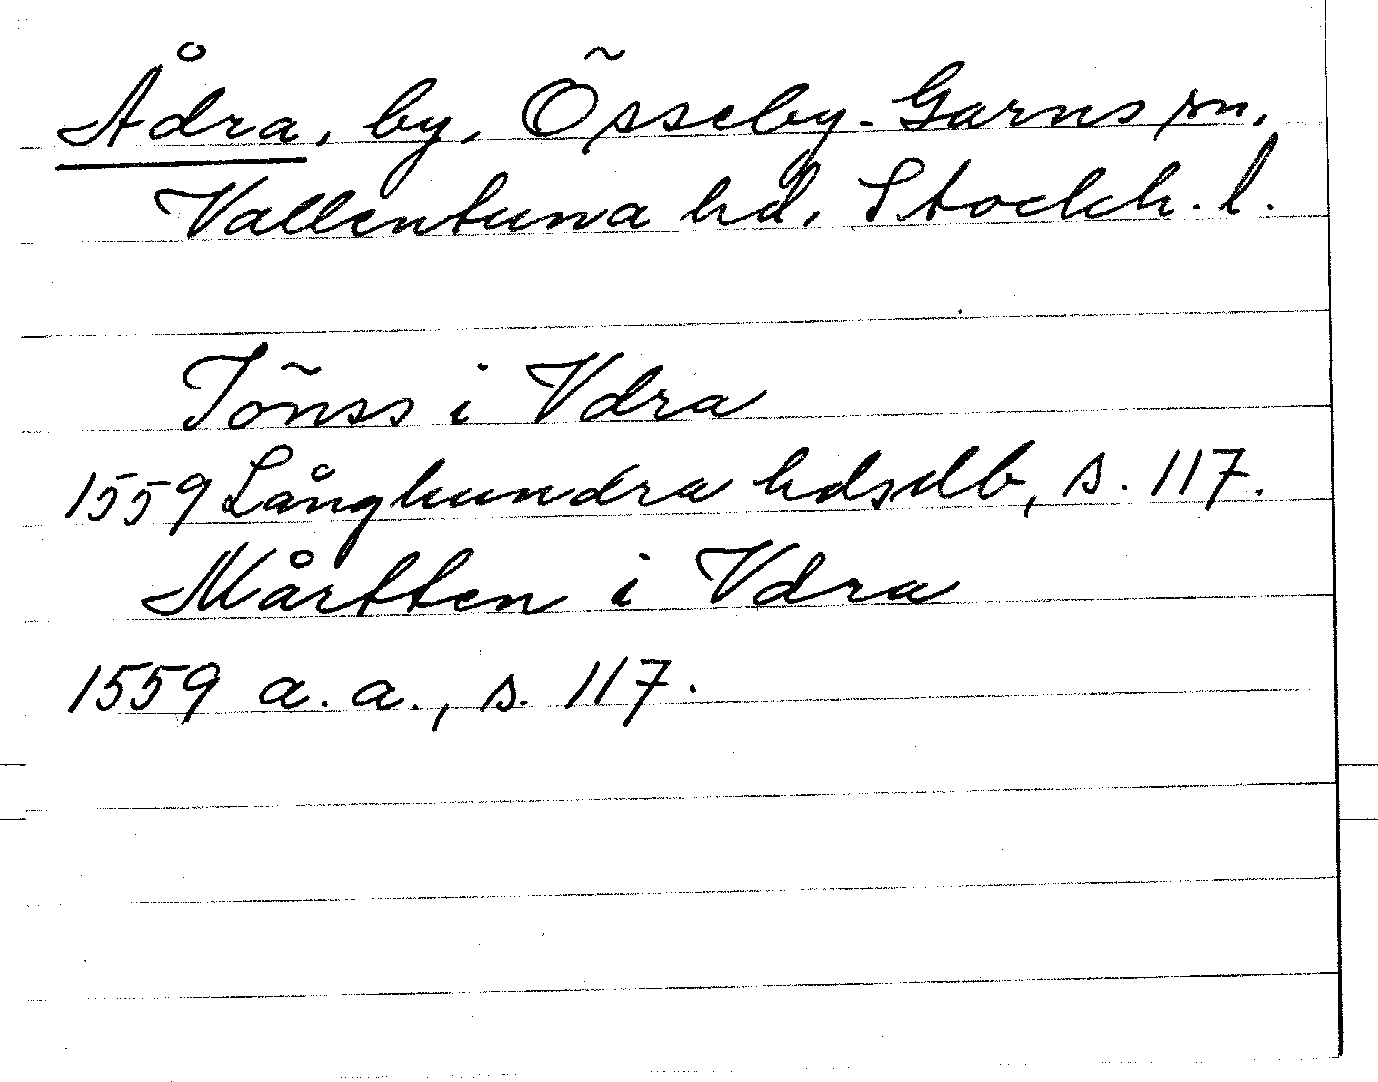 Ådra, by, Össeby-Garns sn,
Vallentuna hd, Stockh. l.
Jönss i Vdra
1559 Långhundra hdsdb, s. 117.
Mårtten i Vdra
1559 a. a., s. 117.